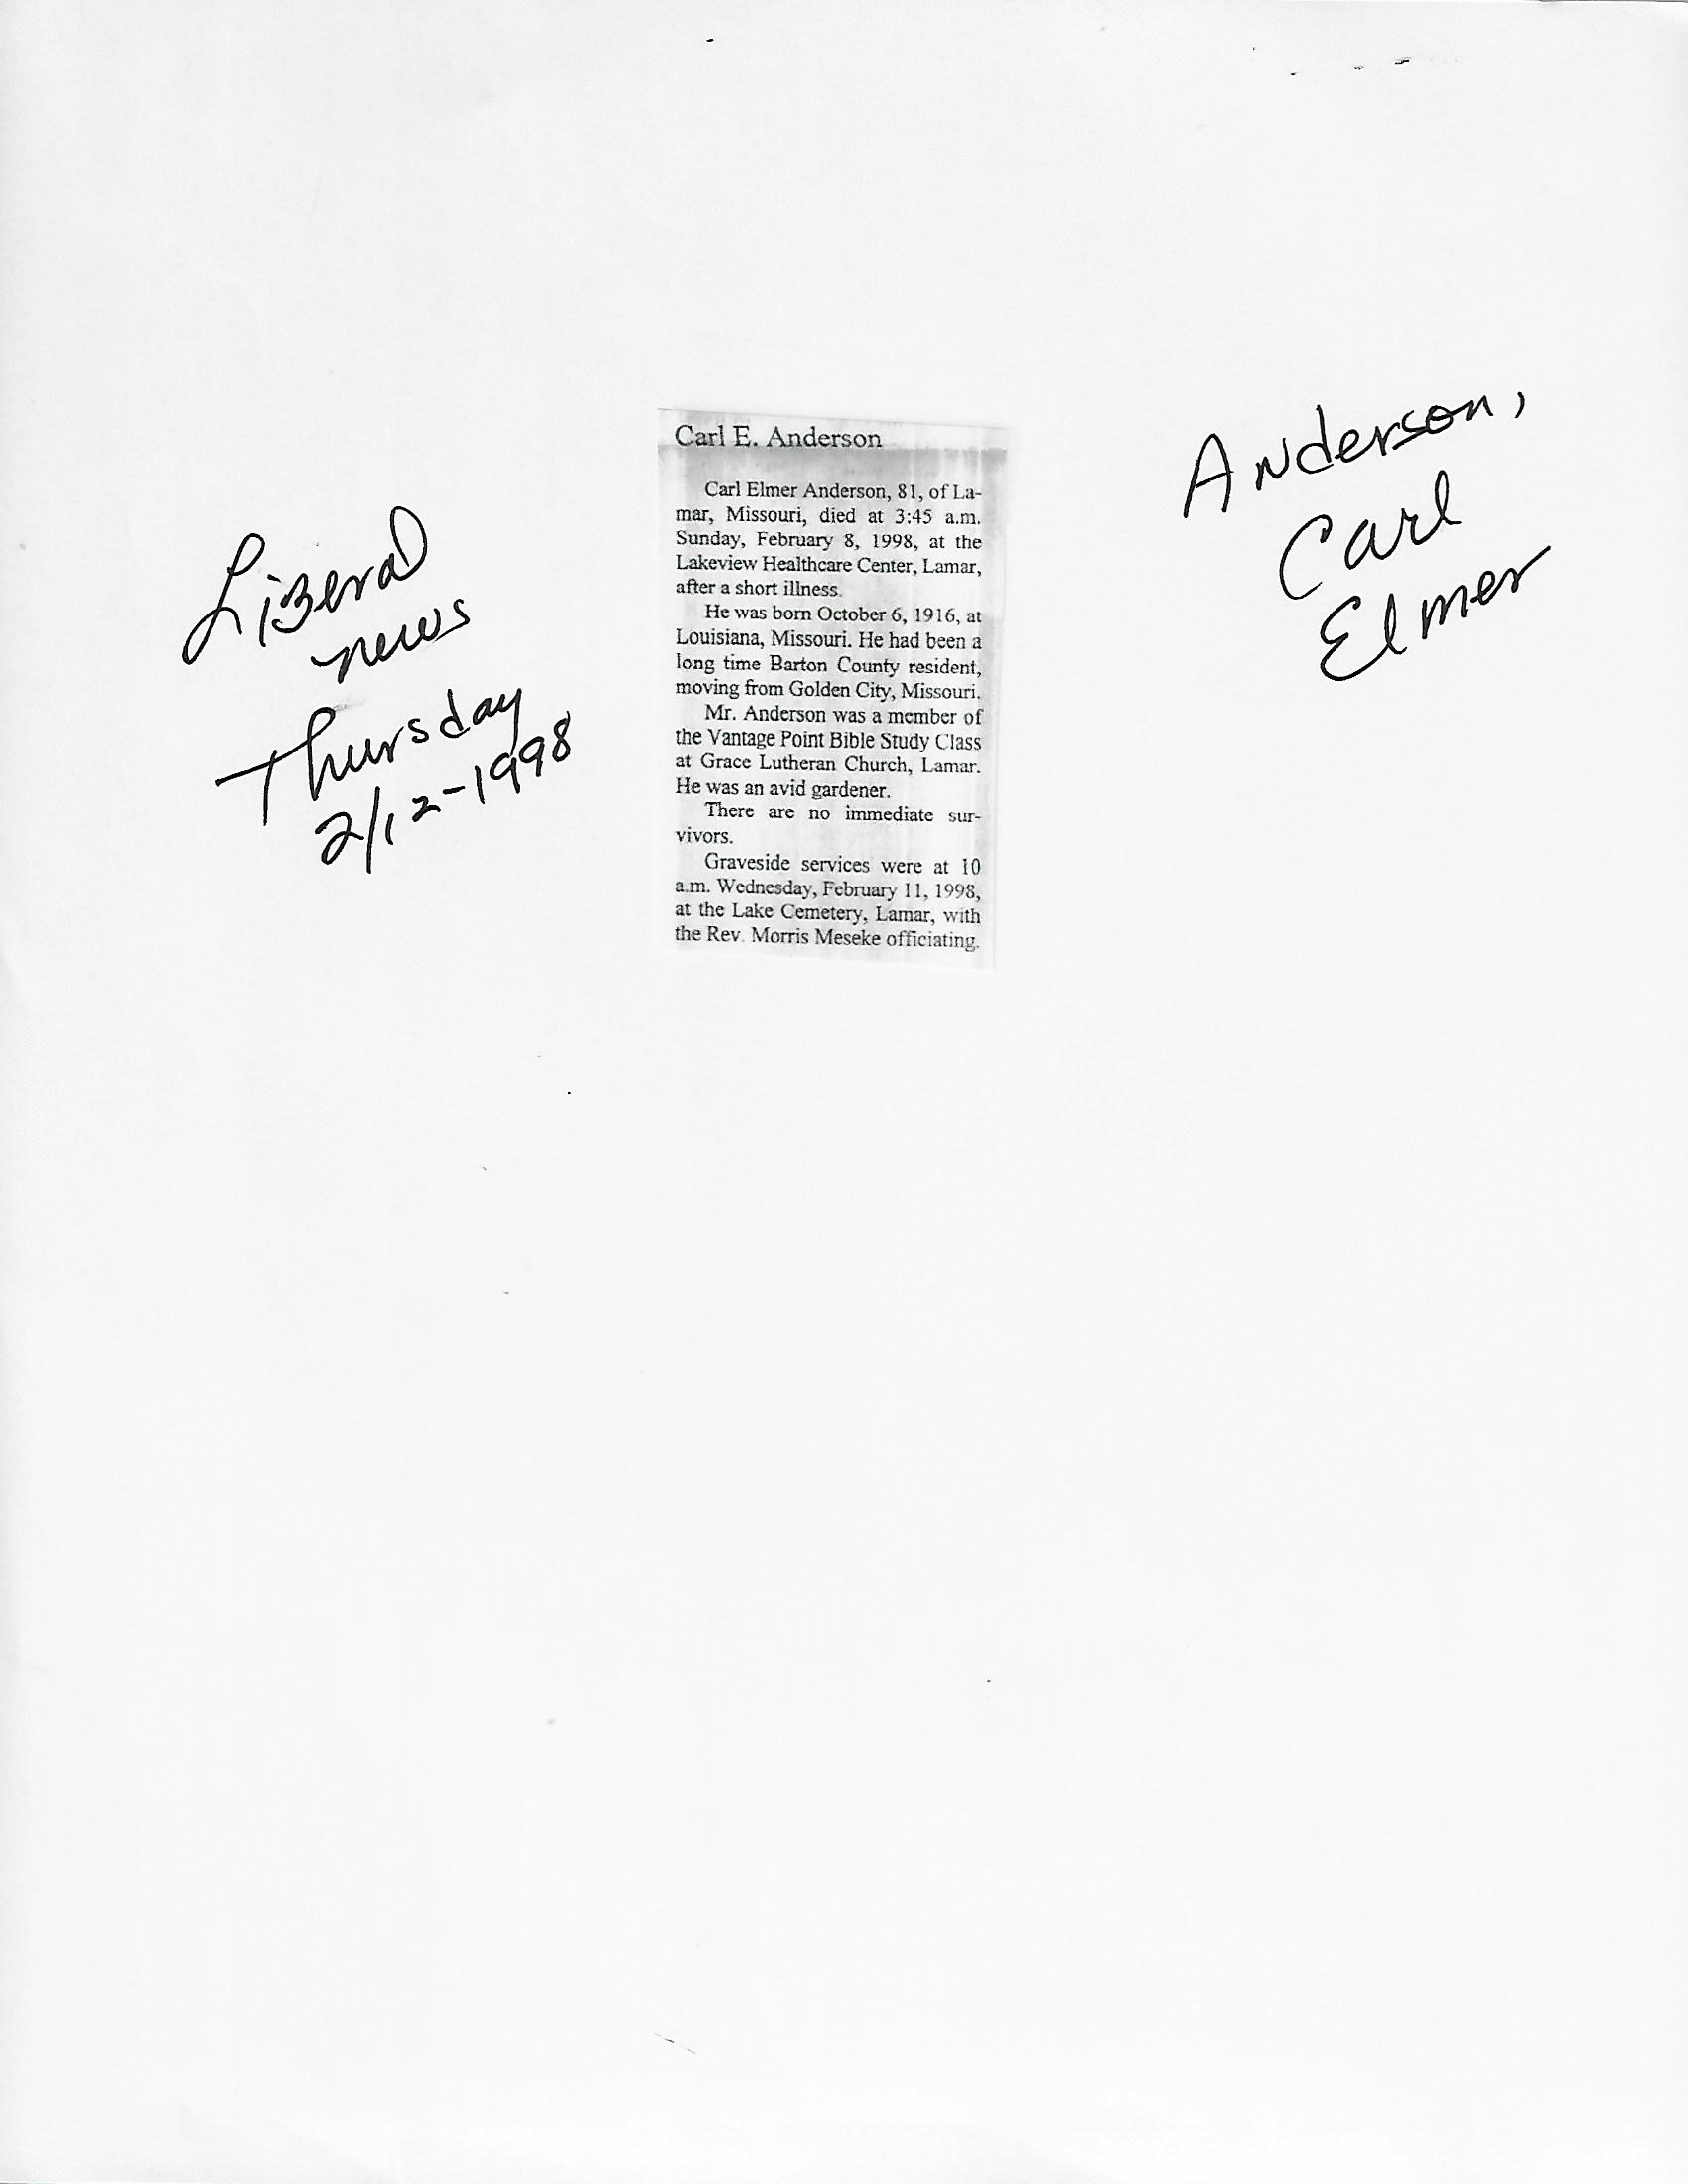 Liberal
news
Thursday
2/12-1998
Carl E. Anderson
Carl Elmer Anderson, 81, of La-
mar, Missouri, died at 3:45 a.m.
Sunday, February 8, 1998, at the
Lakeview Healthcare Center, Lamar,
after a short illness.
He was born October 6, 1916, at
Louisiana, Missouri. He had been a
long time Barton County resident,
moving from Golden City, Missouri.
Mr. Anderson was a member of
the Vantage Point Bible Study Class
at Grace Lutheran Church, Lamar.
He was an avid gardener.
There are no immediate sur-
vivors.
Graveside services were at 10
a.m. Wednesday, February 11, 1998,
at the Lake Cemetery, Lamar, with
the Rev. Morris Meseke officiating.
Anderson,
Carl
Elmer